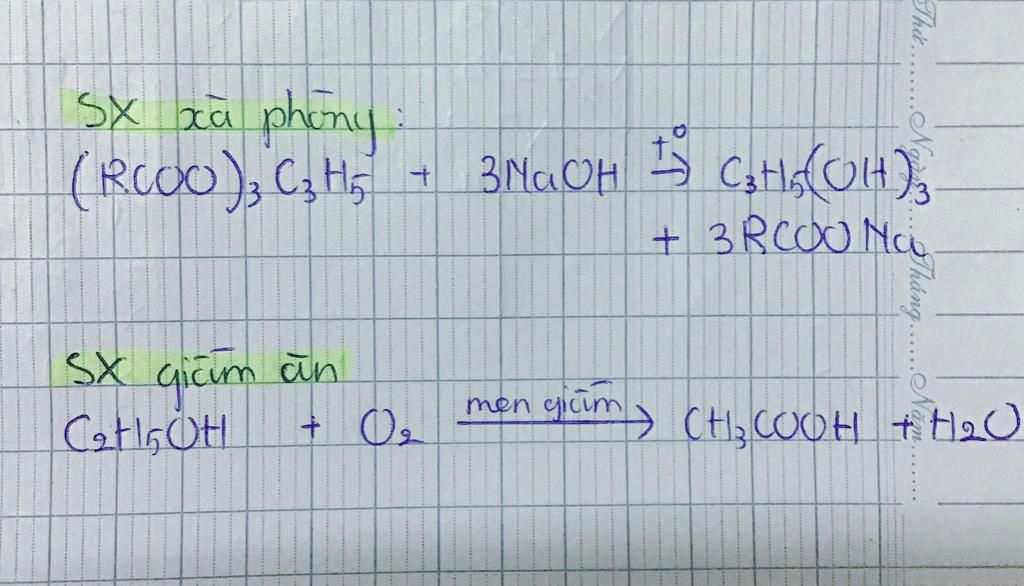 SX xà phòng:
(RCOO)₃C₃H₅ + 3NaOH t⁰→ C₃H₅(OH)₃
+ 3RCOONa
SX giấm ăn
C₂H₅OH + O₂ men giấm→ CH₃COOH + H₂O
Thứ........Ngày........Tháng........Năm........